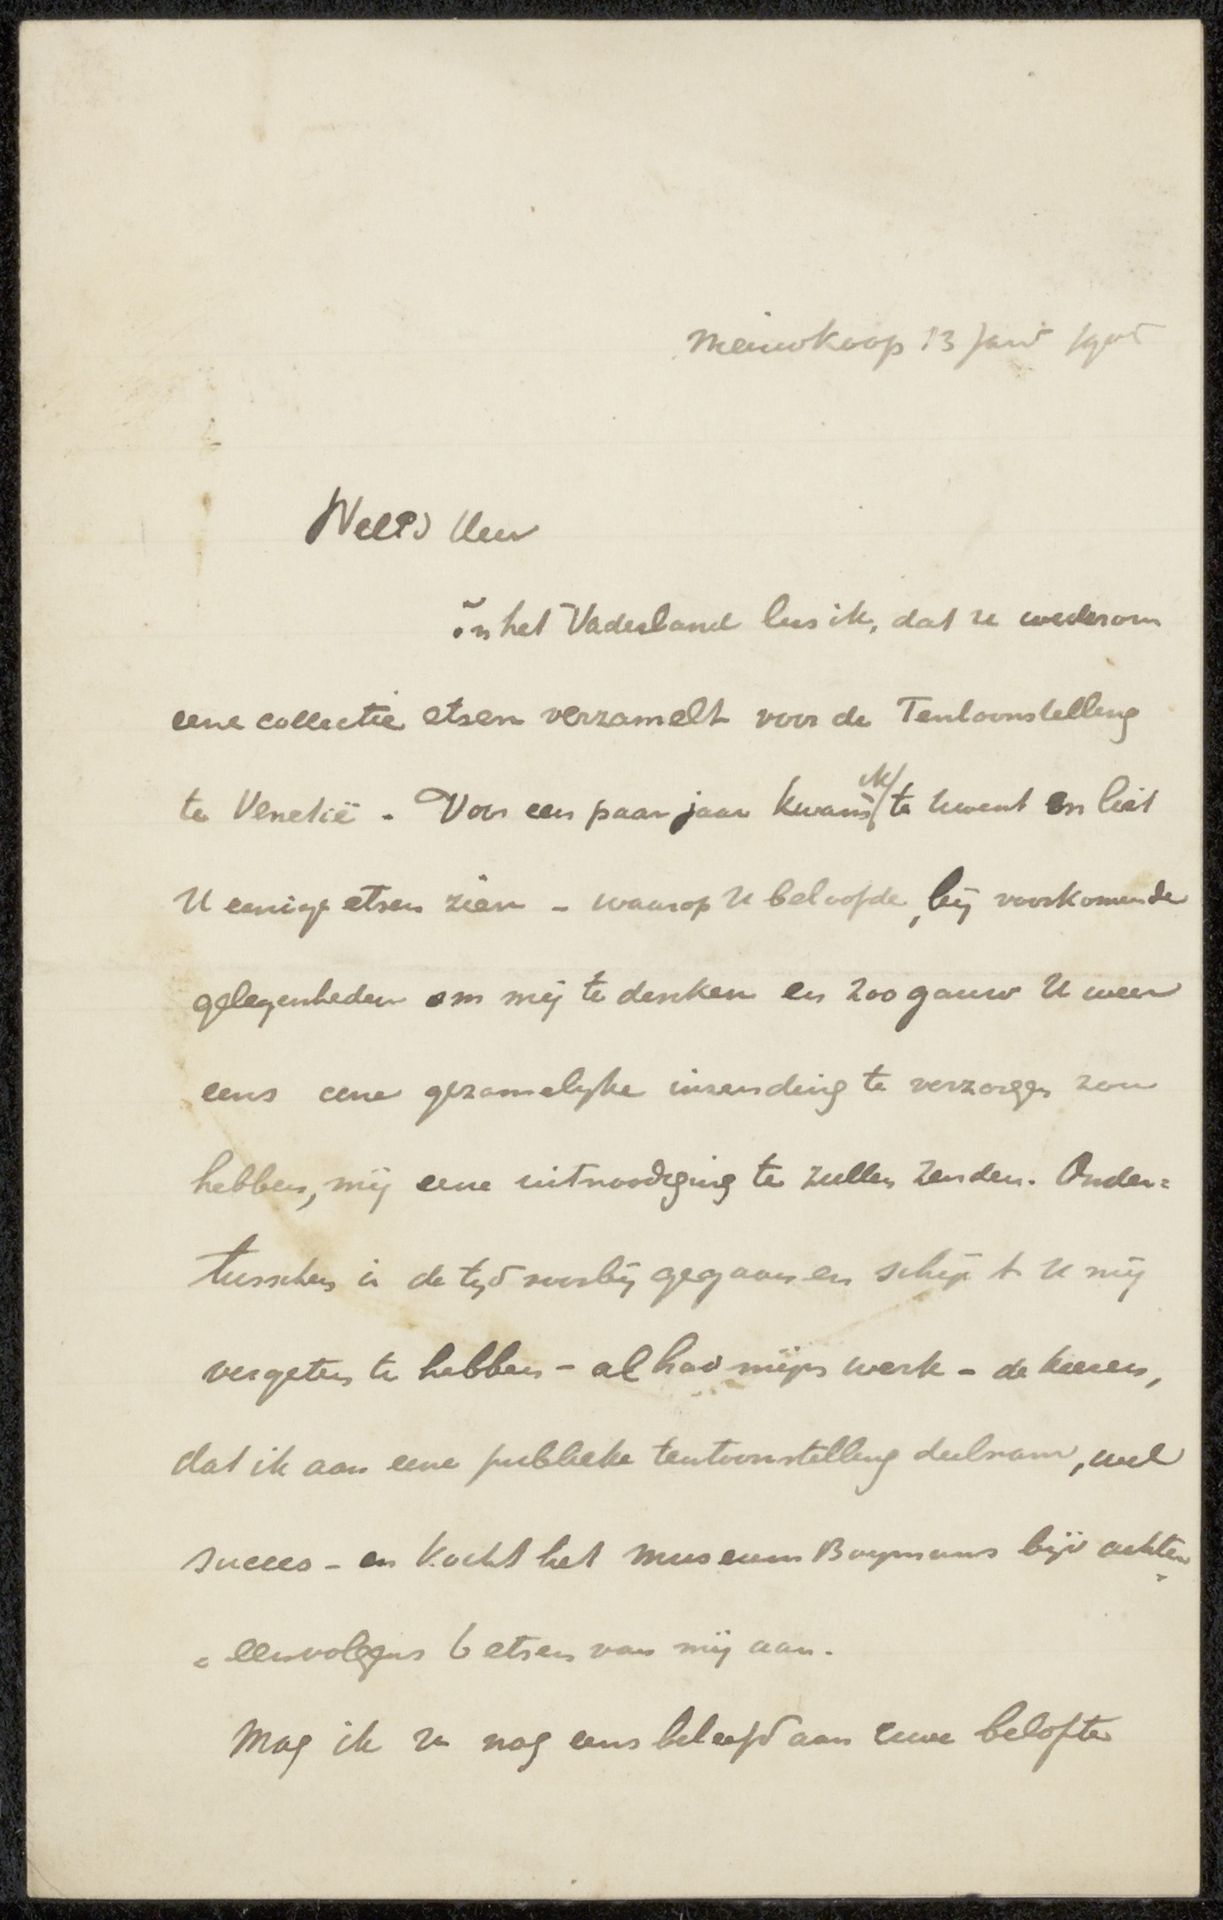 Nieuwkoop 13 Jani 1905
WelEd Heer
in het Vaderland las ik, dat U wederom
eene collectie etsen verzamelt voor de Tentoonstelling
te Venetië. Voor een paar jaar kwam ik te Uwent en liet
U eenige etsen zien - waarop U beloofde, bij voorkomende
gelegenheden om mij te denken en zoo gauw U weer
eens eene gezamelyke inzending te verzorgen zou
hebben, mij eene uitnoodiging te zullen zenden. Onder=
tusschen is de tyd voorbij gegaan en schijnt U mij
vergeten te hebben - al had mijn werk - de keeren,
dat ik aan eene publieke tentoonstelling deelnam, wel
succes - en kocht het museum Boymans bijv achter
= eenvolgens 6 etsen van mij aan.
Mag ik U nog eens beleefd aan Uwe belofte